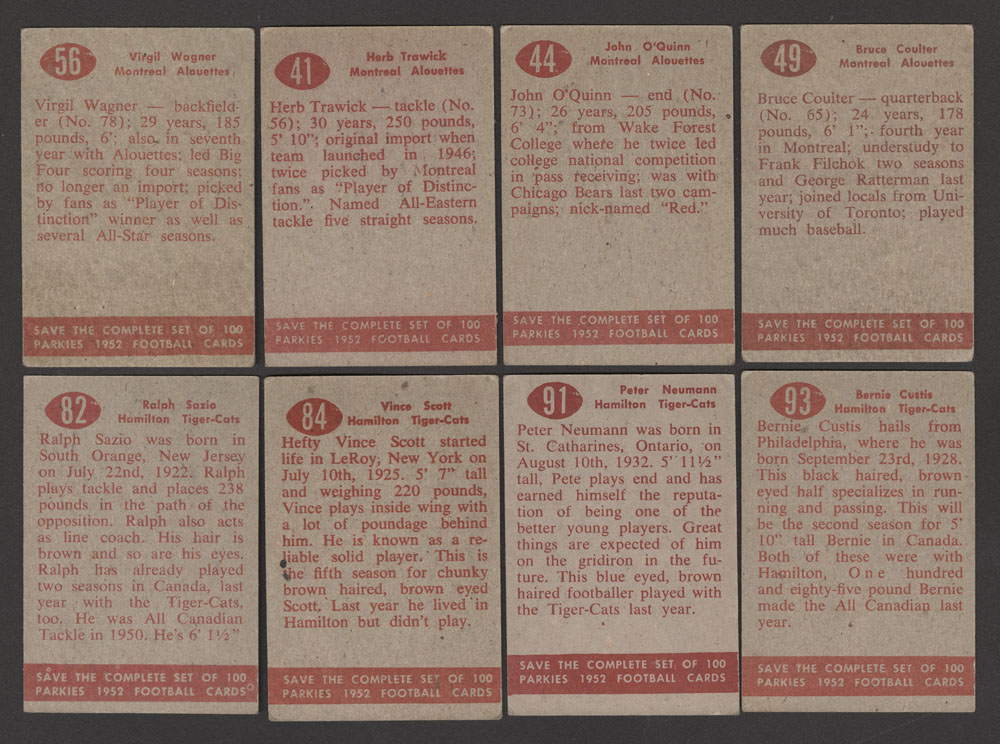 56
Virgil Wagner
Montreal Alouettes
Virgil Wagner — backfield-
er (No. 78); 29 years, 185
pounds, 6'; also in seventh
year with Alouettes; led Big
Four scoring four seasons;
no longer an import; picked
by fans as "Player of Dis-
tinction" winner as well as
several All-Star seasons.
SAVE THE COMPLETE SET OF 100
PARKIES 1952 FOOTBALL CARDS
41
Herb Trawick
Montreal Alouettes
Herb Trawick — tackle (No.
56); 30 years, 250 pounds,
5' 10"; original import when
team launched in 1946;
twice picked by Montreal
fans as "Player of Distinc-
tion.". Named All-Eastern
tackle five straight seasons.
SAVE THE COMPLETE SET OF 100
PARKIES 1952 FOOTBALL CARDS
44
John O'Quinn
Montreal Alouettes
John O'Quinn — end (No.
73); 26 years, 205 pounds,
6' 4"; from Wake Forest
College where he twice led
college national competition
in pass receiving; was with
Chicago Bears last two cam-
paigns; nick-named "Red."
SAVE THE COMPLETE SET OF 100
PARKIES 1952 FOOTBALL CARDS
49
Bruce Coulter
Montreal Alouettes
Bruce Coulter — quarterback
(No. 65); 24 years, 178
pounds, 6' 1"; fourth year
in Montreal; understudy to
Frank Filchok two seasons
and George Ratterman last
year; joined locals from Uni-
versity of Toronto; played
much baseball.
SAVE THE COMPLETE SET OF 100
PARKIES 1952 FOOTBALL CARDS
82
Ralph Sazio
Hamilton Tiger-Cats
Ralph Sazio was born in
South Orange, New Jersey
on July 22nd, 1922. Ralph
plays tackle and places 238
pounds in the path of the
opposition. Ralph also acts
as line coach. His hair is
brown and so are his eyes.
Ralph has already played
two seasons in Canada, last
year with the Tiger-Cats,
too. He was All Canadian
Tackle in 1950. He's 6' 1½"
SAVE THE COMPLETE SET OF 100
PARKIES 1952 FOOTBALL CARDS
84
Vince Scott
Hamilton Tiger-Cats
Hefty Vince Scott started
life in LeRoy, New York on
July 10th, 1925. 5' 7" tall
and weighing 220 pounds,
Vince plays inside wing with
a lot of poundage behind
him. He is known as a re-
liable solid player. This is
the fifth season for chunky
brown haired, brown eyed
Scott. Last year he lived in
Hamilton but didn't play.
SAVE THE COMPLETE SET OF 100
PARKIES 1952 FOOTBALL CARDS
91
Peter Neumann
Hamilton Tiger-Cats
Peter Neumann was born in
St. Catharines, Ontario, on
August 10th, 1932. 5' 11½"
tall, Pete plays end and has
earned himself the reputa-
tion of being one of the
better young players. Great
things are expected of him
on the gridiron in the fu-
ture. This blue eyed, brown
haired footballer played with
the Tiger-Cats last year.
SAVE THE COMPLETE SET OF 100
PARKIES 1952 FOOTBALL CARDS
93
Bernie Custis
Hamilton Tiger-Cats
Bernie Custis hails from
Philadelphia, where he was
born September 23rd, 1928.
This black haired, brown
eyed half specializes in run-
ning and passing. This will
be the second season for 5'
10" tall Bernie in Canada.
Both of these were with
Hamilton, One hundred
and eighty-five pound Bernie
made the All Canadian last
year.
SAVE THE COMPLETE SET OF 100
PARKIES 1952 FOOTBALL CARDS